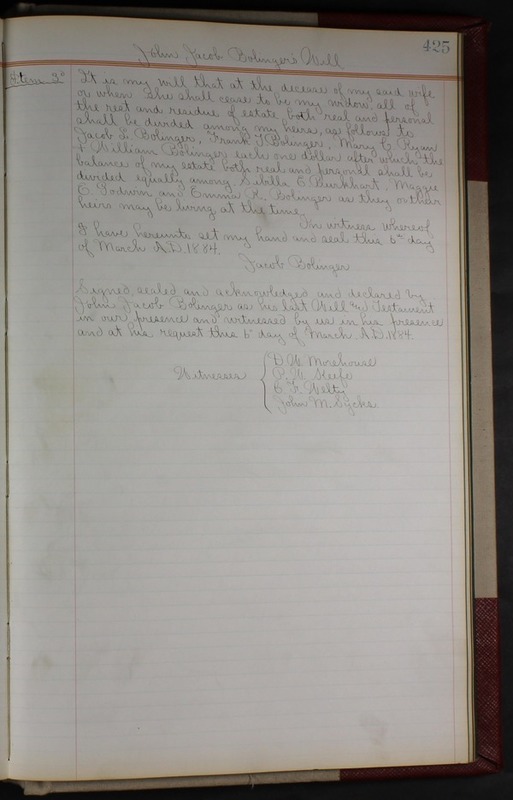 425
John Jacob Bolinger's Will
Item 3d It is my will that at the decease of my said wife
or when she shall cease to be my widow, all of
the rest and residue of estate, both real and personal
shall be divided among my heirs, as follows to
Jacob L Bolinger, Frank J Bolinger, Mary C. Ryan
& William Bolinger each one dollar after which the
balance of my estate both real and personal shall be
divided equally among Sibilla E Burkhart, Maggie
E. Godwin and Emma K. Bolinger as they or their
heirs may be living at the time.
In witness whereof
I have hereunto set my hand and seal this 6th day
of March A.D. 1884.
Jacob Bolinger
Signed, sealed and acknowledged and declared by
John Jacob Bolinger as his last Will and Testament
in our presence and witnessed by us in his presence
and at his request this 6 day of March A.D. 1884
Witnesses
D. W. Morehouse
P. W. Keefe
C. F. Welty
John M. Sycks